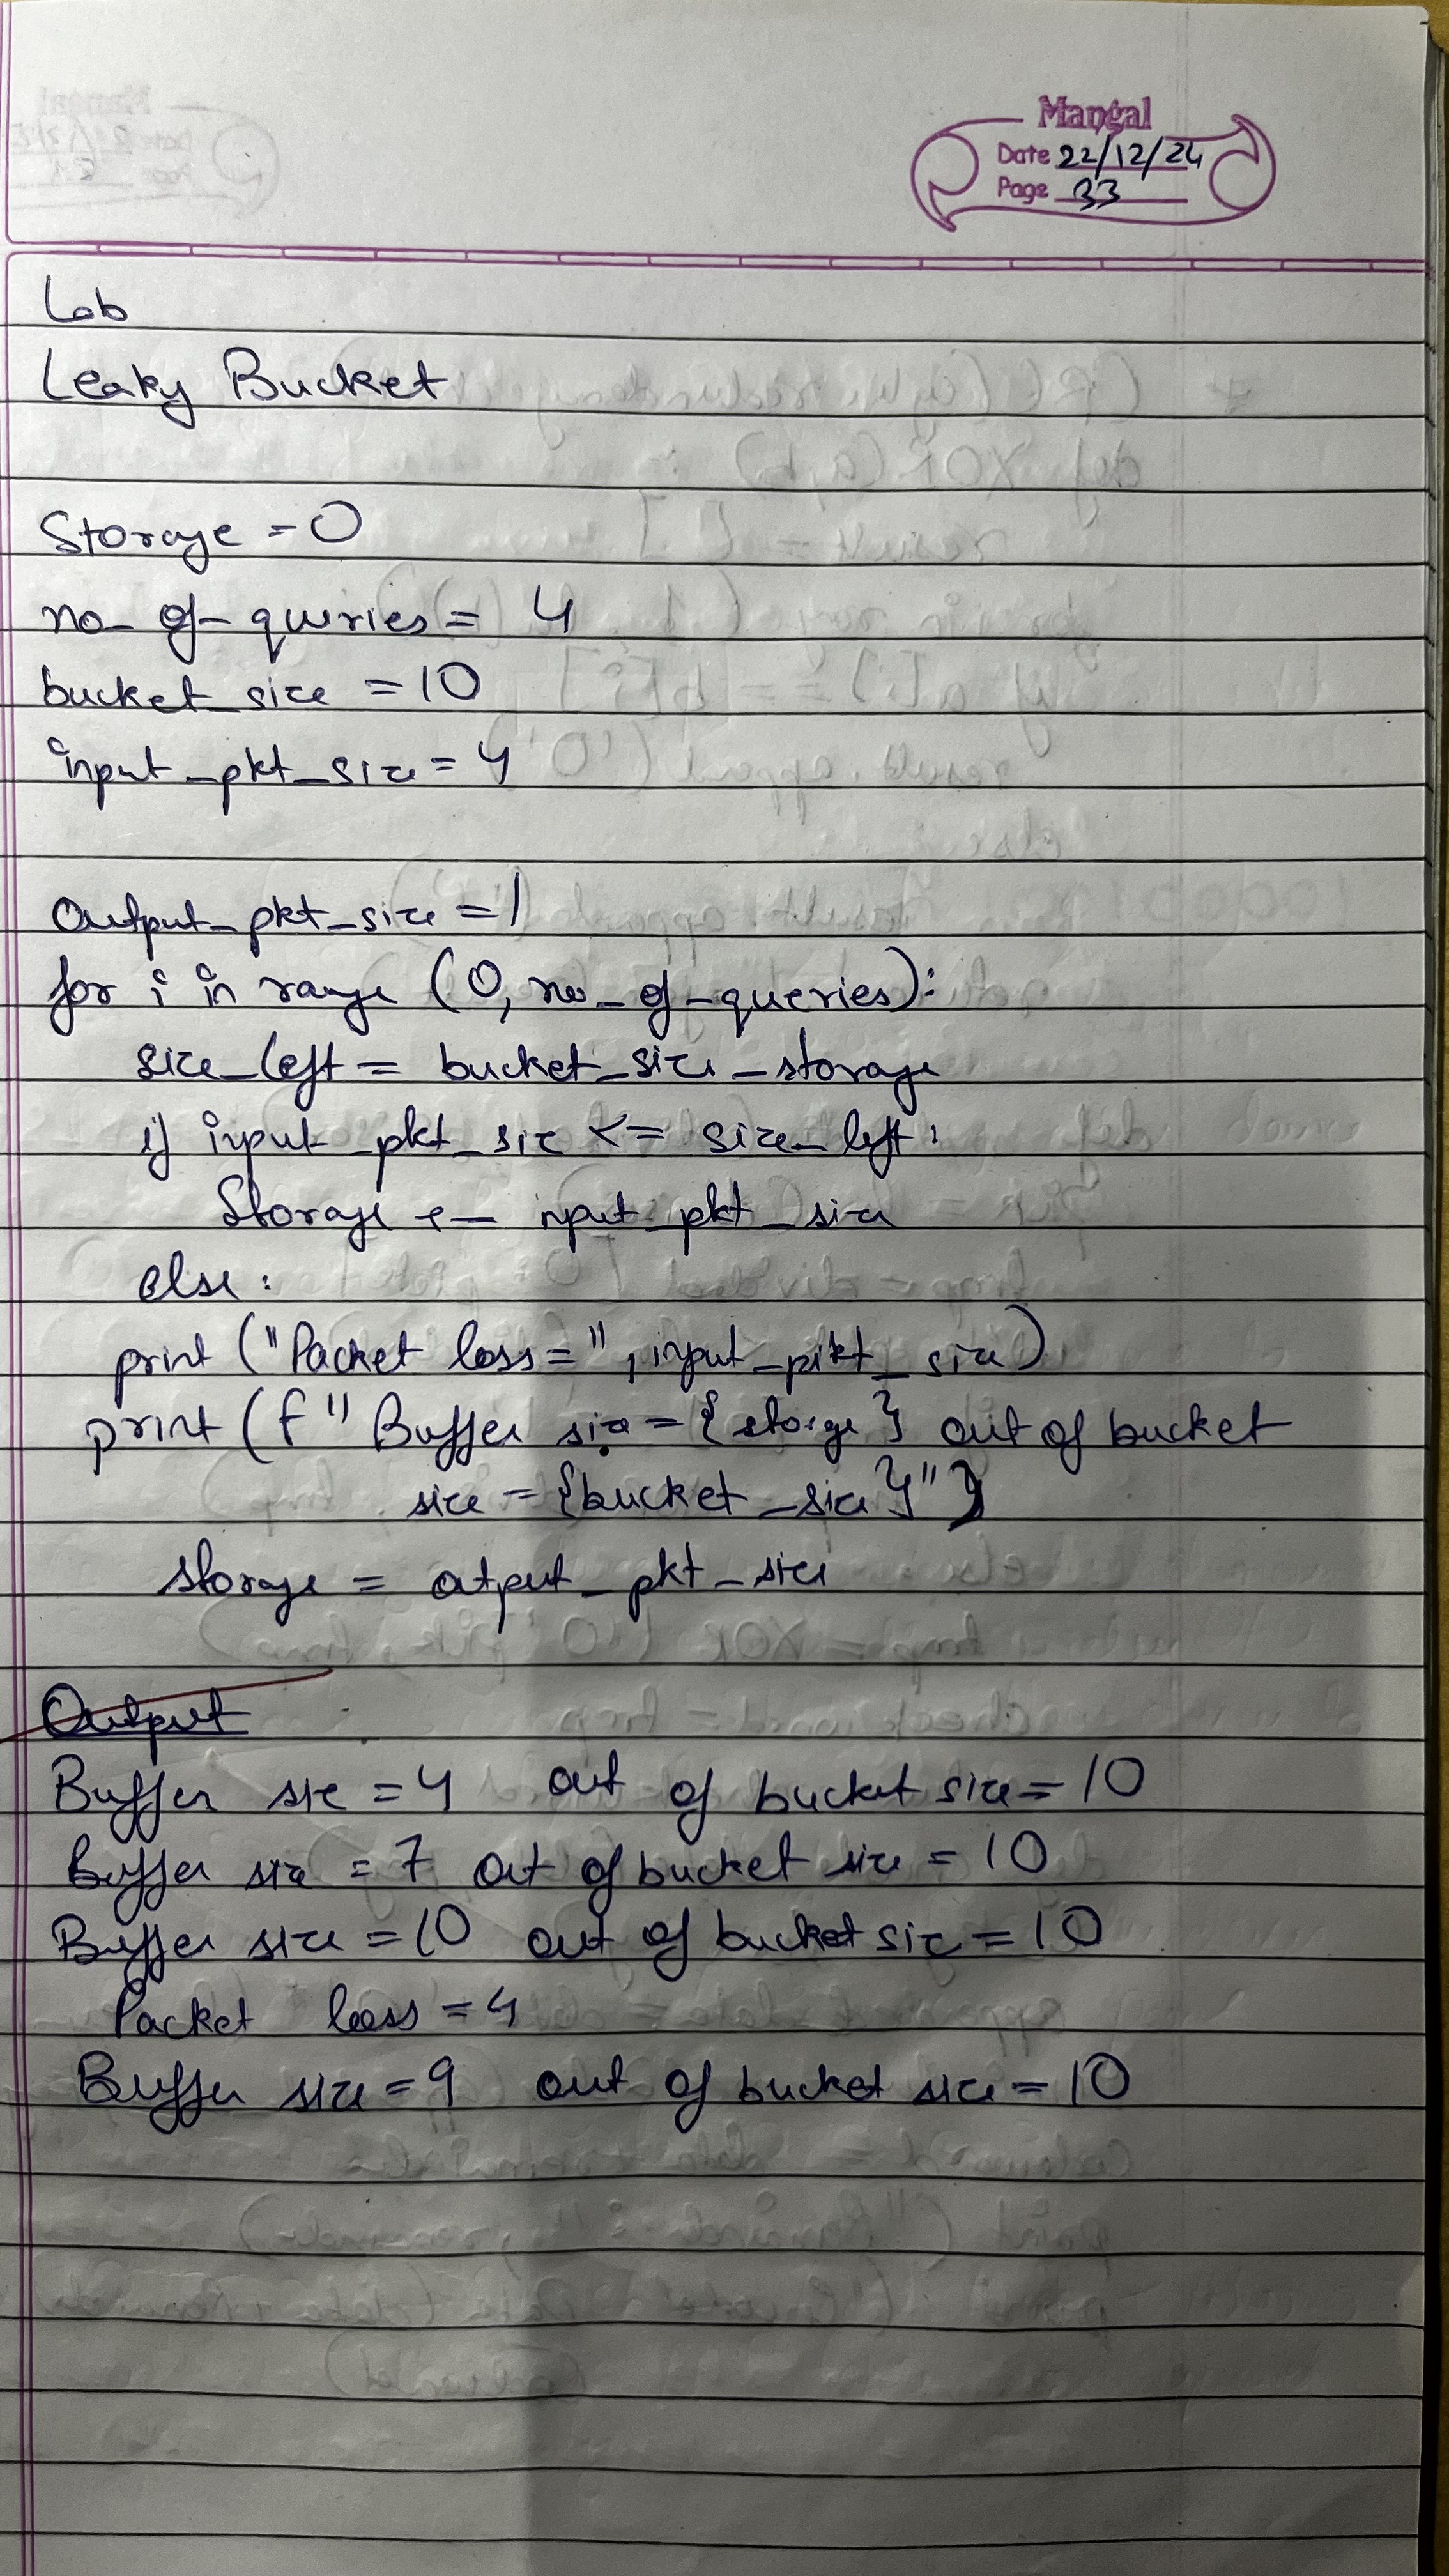 Mangal
Date 22/12/24
Page 33
Lab
Leaky Bucket
Storage = 0
no_of_quries = 4
bucket_size = 10
input_pkt_size = 4
Output_pkt_size = 1
for i in range (0, no_of_queries):
size_left = bucket_size - storage
if input_pkt_siz <= size_left:
Storage += input_pkt_size
else:
print ("Packet loss=", input_pkt_size)
print (f" Buffer size = {storge} out of bucket
size = {bucket_size}")
storage = output_pkt_size
Output
Buffer size = 4 out of bucket size = 10
Buffer size = 7 out of bucket size = 10
Buffer size = 10 out of bucket size = 10
Packet loss = 4
Buffer size = 9 out of bucket size = 10